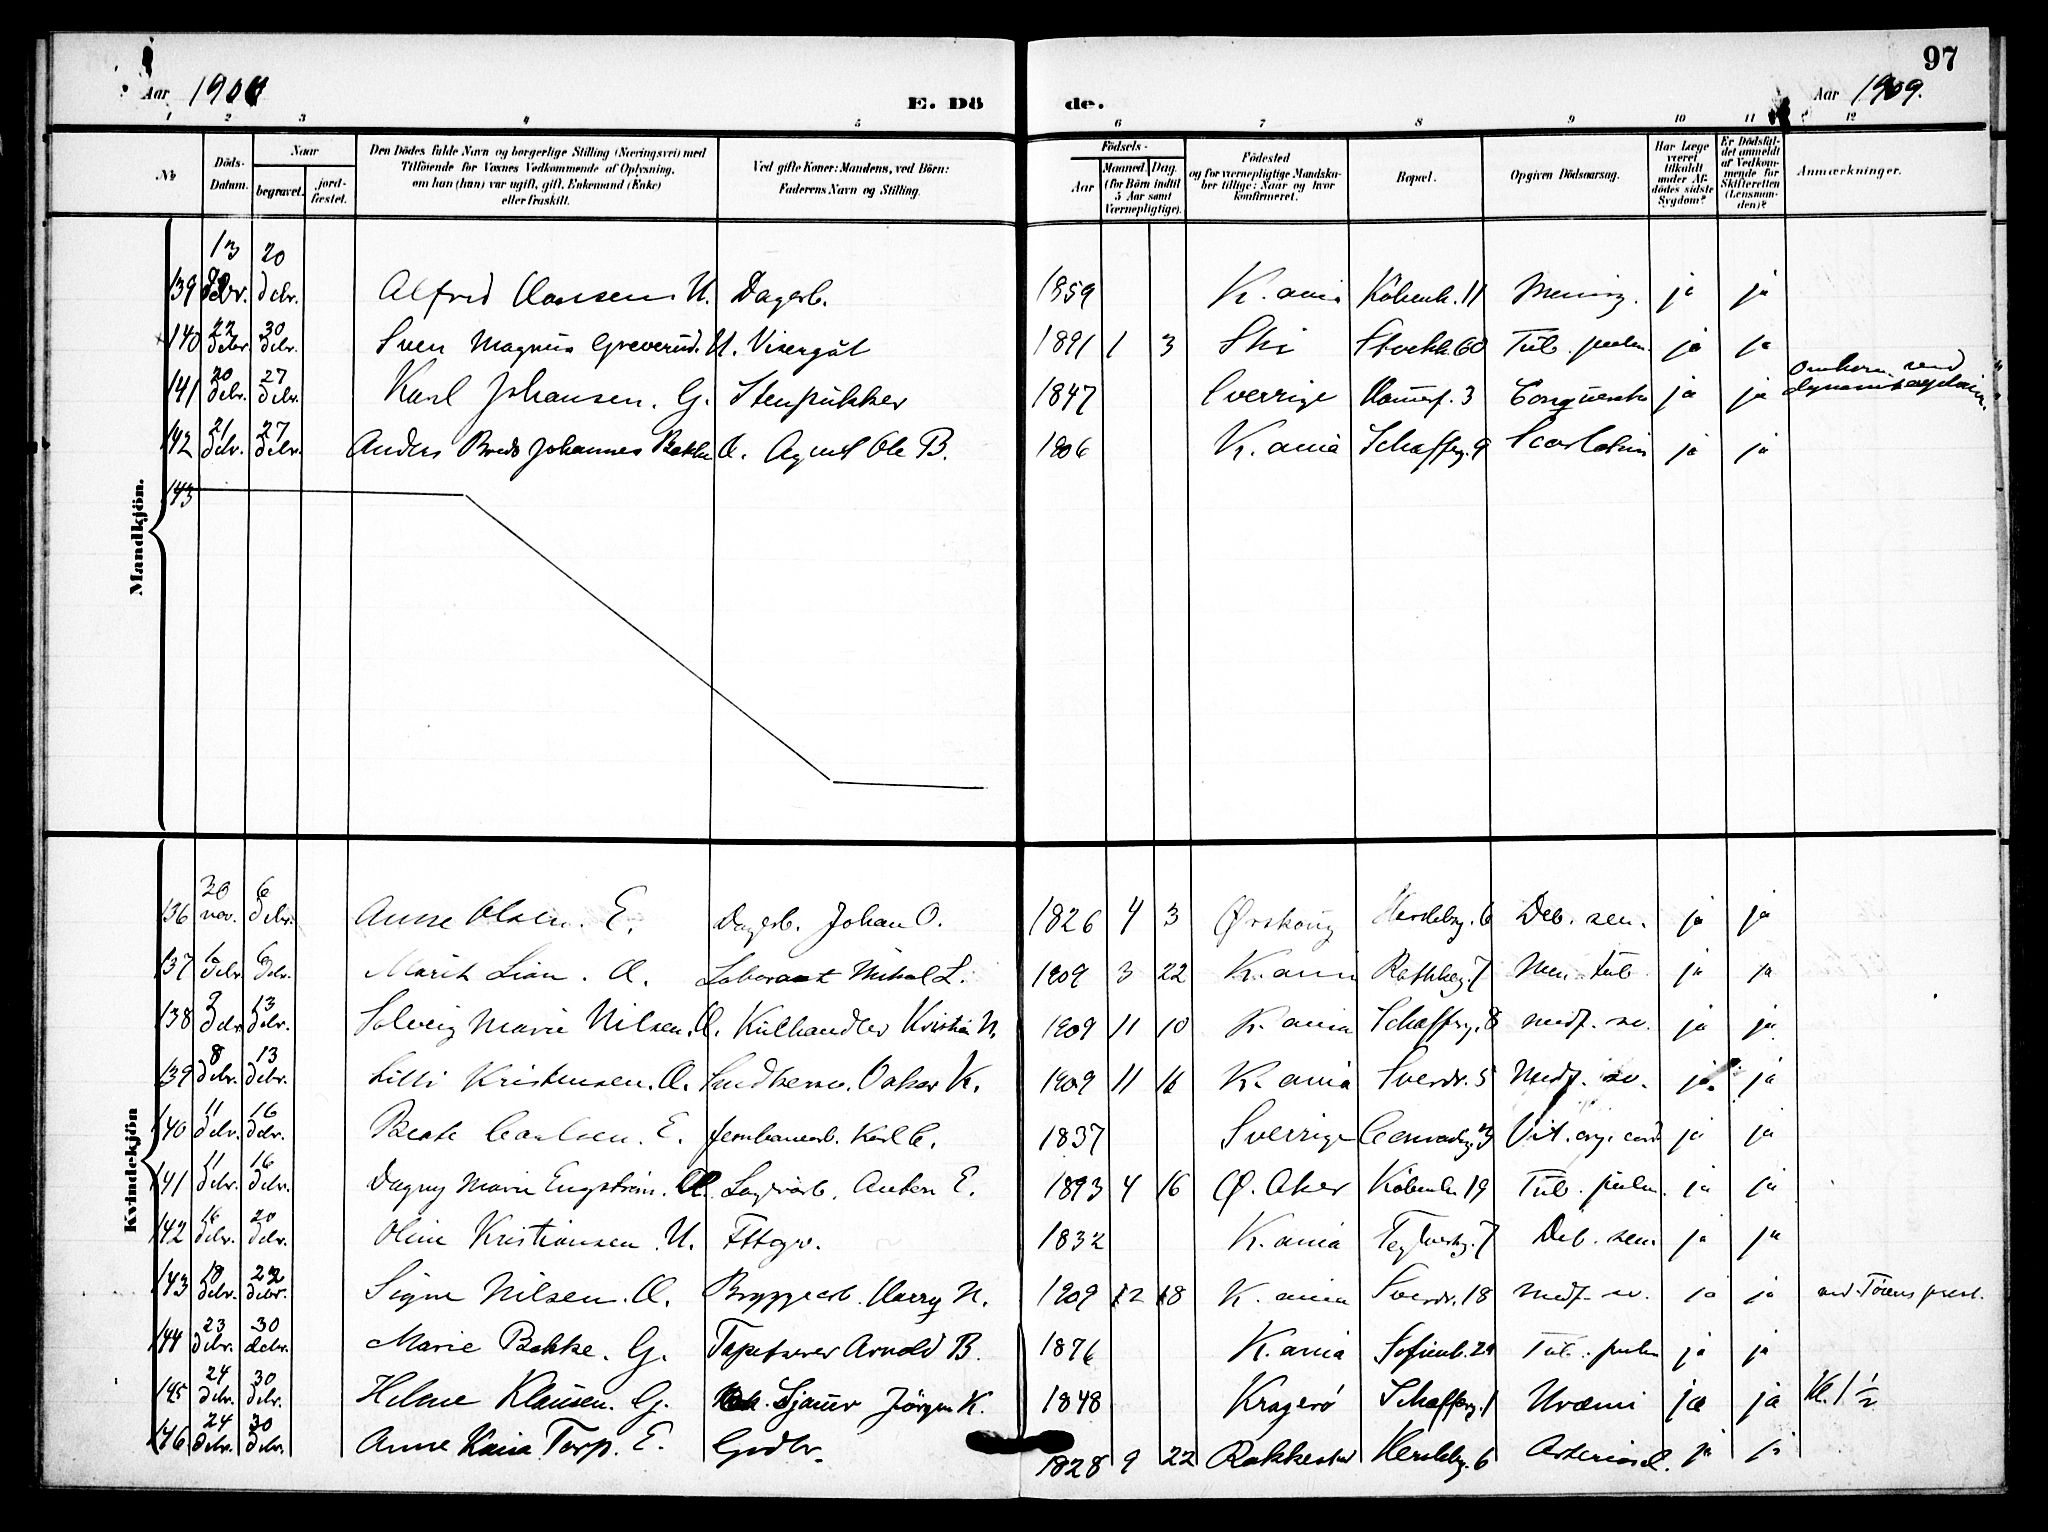 97
Aar 1909 E. Dö de. Aar 1909.
1 2 3 4 5 6 7 8 9 10 11 12
No Döds-Datum. Naar begravet. jord-fæstet. Den Dödes fulde Navn og borgerlige Stilling (Næringsvei) med Tilföiende for Voxnes Vedkommende af Oplysning, om hun (han) var ugift, gift, Enkemand (Enke) eller fraskilt. Ved gifte Koner: Mandens, ved Börn: Faderens Navn og Stilling. Födsels- Aar Maaned. Dag. (for Börn indtil 5 Aar samt Værnepligtige). Födested og for værnepligtige Mandskaber tillige: Naar og hvor konfirmeret. Bopæl. Opgiven Dödsaarsag. Har Læge været tilkaldt under Afdödes sidste Sygdom? Er Dödsfaldet anmeldt af Vedkommende for Skifteretten (Lensmanden)? Anmærkninger.
Mandkjön.
139 13 debr. 20 debr. Alfred Hansen U. Dagarb. 1859 K.ania Köbenh. 11 Mening. ja ja
140 22 debr. 30 debr. Sven Magnus Greverud. U. Visergut 1891 1 3 Ski Stockh. 60 Tub. pulm. ja ja
141 20 debr. 27 debr. Karl Johansen. G. Stenpukker 1847 Sverrige Hamerf. 3 ja ja Omkom. ved
142 21 debr. 27 debr. Anders Johannes Bakke U. Ole B. 1906 K.ania Schafferg. 9 Scarlatin ja ja
143
Kvindekjön
136 30 nov. 6 debr. Anne Olsen. E. Dagarb. Johan O. 1826 4 3 Ørskoug Herslebsg. 6 Deb. sen. ja ja
137 debr. 6 debr. Marit Lian. U. Laborant Mikal L. 1909 3 22 K.ania Rathkesg. 7 Men. tub. ja ja
138 debr. 13 debr. Solveig Marie Nilsen. U. Kulhandler Kristian N. 1909 11 10 K.ania Schafferg. 8 medf. sv. ja ja
139 8 debr. 13 debr. Lilli Kristensen. U. Smedsvend. Oskar K. 1909 11 16 K.ania Sverdr. 5 Medf. sv. ja. ja
140 11 debr. 16 debr. Beate Carlsen. E. Jernbanearb. Karl C. 1837 Sverrige Vit. org. cord. ja ja
141 11 debr. 16 debr. Dagny Marie Engström. U. Anton E. 1893 4 16 Ø. Aker Köbenh. 19 Tub. pulm. ja ja
142 16 debr. 20 debr. Oline Kristiansen. U. Fttgv. 1832 K.ania Teglverksg. 7 Deb. sen. ja ja
143 18 debr. 22 debr. Signe Nilsen. U. Bryggearb. Harry N. 1909 12 18 K.ania Sverdr. 18 medf. sv. ja ja
144 23 debr. 30 debr. Marie Bakke. G. Tapetserer Arnold B. 1876 K.ania Sofienb. 29 Tub. pulm ja ja
145 24 debr. 30 debr. Helene Klausen. G. Sjauer Jörgen K. 1848 Kragerö Schafferg. 1 Uræmi ja ja Kl. 1 ½
146 24 debr. 30 debr. Anne Karia Torp. E. Grdbr. 1828 9 22 Rakkestad Herslebsg. 6 Arteriosel. ja ja